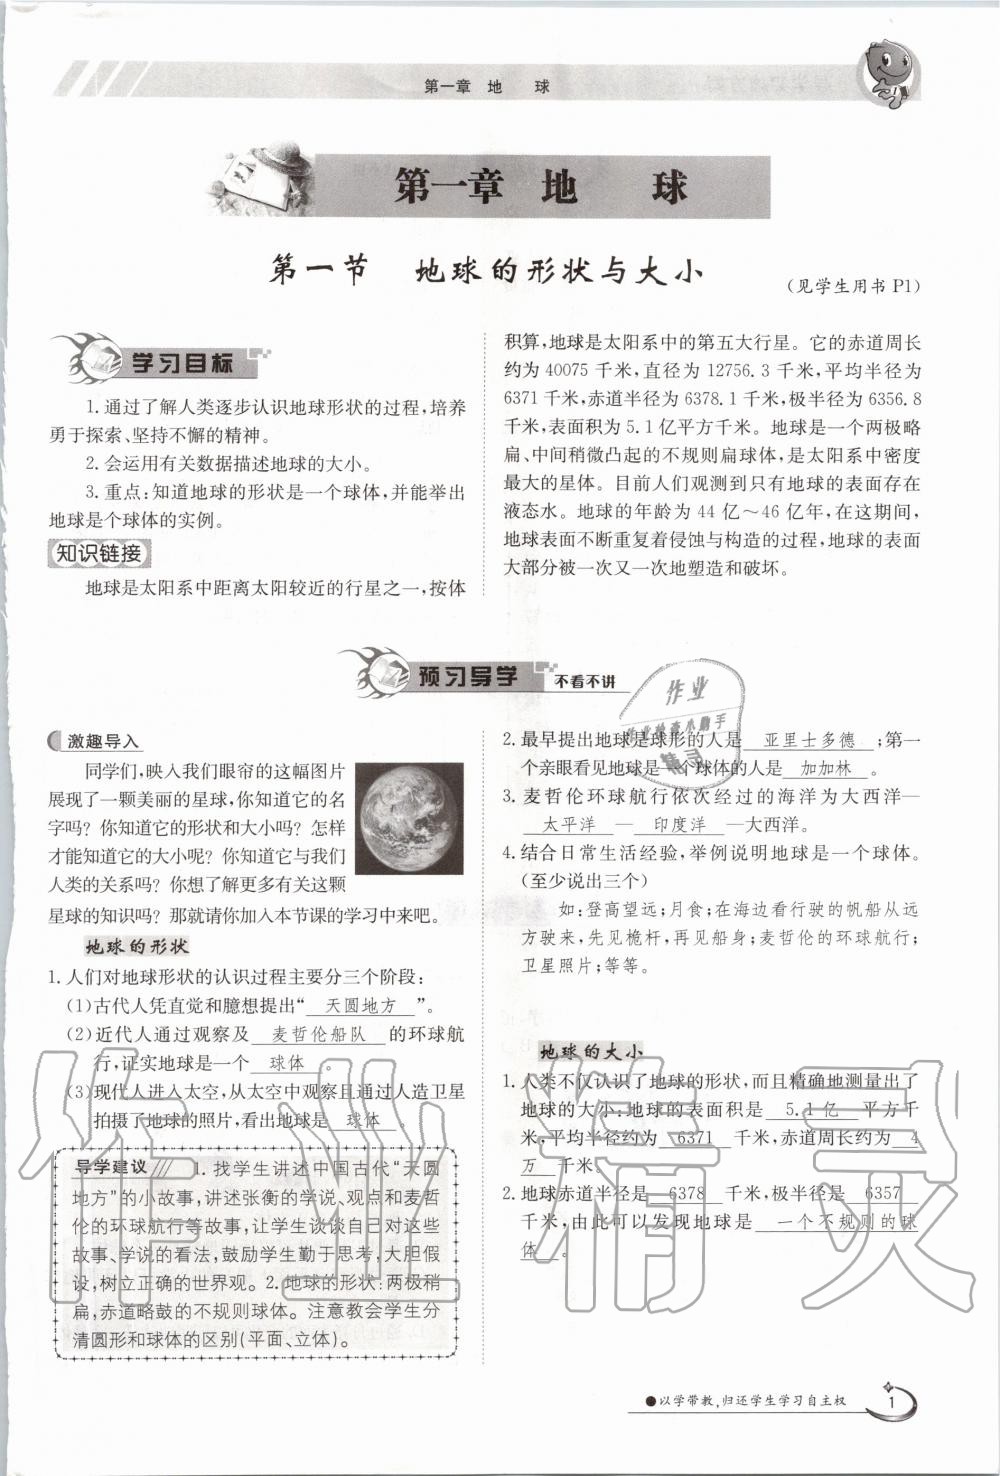 第一章 地 球
第一章 地 球
第一节 地球的形状与大小
(见学生用书 P1)
学习目标
1.通过了解人类逐步认识地球形状的过程,培养
勇于探索、坚持不懈的精神。
2.会运用有关数据描述地球的大小。
3.重点:知道地球的形状是一个球体,并能举出
地球是个球体的实例。
知识链接
地球是太阳系中距离太阳较近的行星之一,按体
积算,地球是太阳系中的第五大行星。它的赤道周长
约为 40075 千米,直径为 12756.3 千米,平均半径为
6371 千米,赤道半径为 6378.1 千米,极半径为 6356.8
千米,表面积为 5.1 亿平方千米。地球是一个两极略
扁、中间稍微凸起的不规则扁球体,是太阳系中密度
最大的星体。目前人们观测到只有地球的表面存在
液态水。地球的年龄为 44 亿～46 亿年,在这期间,
地球表面不断重复着侵蚀与构造的过程,地球的表面
大部分被一次又一次地塑造和破坏。
预习导学 不看不讲
激趣导入
同学们,映入我们眼帘的这幅图片
展现了一颗美丽的星球,你知道它的名
字吗? 你知道它的形状和大小吗? 怎样
才能知道它的大小呢? 你知道它与我们
人类的关系吗? 你想了解更多有关这颗
星球的知识吗? 那就请你加入本节课的学习中来吧。
地球的形状
1.人们对地球形状的认识过程主要分三个阶段:
(1)古代人凭直觉和臆想提出“ 天圆地方 ”。
(2)近代人通过观察及 麦哲伦船队 的环球航
行,证实地球是一个 球体 。
(3)现代人进入太空,从太空中观察且通过人造卫星
拍摄了地球的照片,看出地球是 球体 。
导学建议 1. 找学生讲述中国古代“天圆
地方”的小故事,讲述张衡的学说、观点和麦哲
伦的环球航行等故事,让学生谈谈自己对这些
故事、学说的看法,鼓励学生勤于思考,大胆假
设,树立正确的世界观。2.地球的形状:两极稍
扁,赤道略鼓的不规则球体。注意教会学生分
清圆形和球体的区别(平面、立体)。
2.最早提出地球是球形的人是 亚里士多德 ;第一
个亲眼看见地球是一个球体的人是 加加林 。
3.麦哲伦环球航行依次经过的海洋为大西洋—
太平洋 — 印度洋 —大西洋。
4.结合日常生活经验,举例说明地球是一个球体。
(至少说出三个)
如:登高望远;月食;在海边看行驶的帆船从远
方驶来,先见桅杆,再见船身;麦哲伦的环球航行;
卫星照片;等等。
地球的大小
1.人类不仅认识了地球的形状,而且精确地测量出了
地球的大小:地球的表面积是 5.1亿 平方千
米,平均半径约为 6371 千米,赤道周长约为 4
万 千米。
2.地球赤道半径是 6378 千米,极半径是 6357
千米,由此可以发现地球是 一个不规则的球
体 。
作业
作业检查小助手
精灵
作业精灵
●以学带教,归还学生学习自主权
1